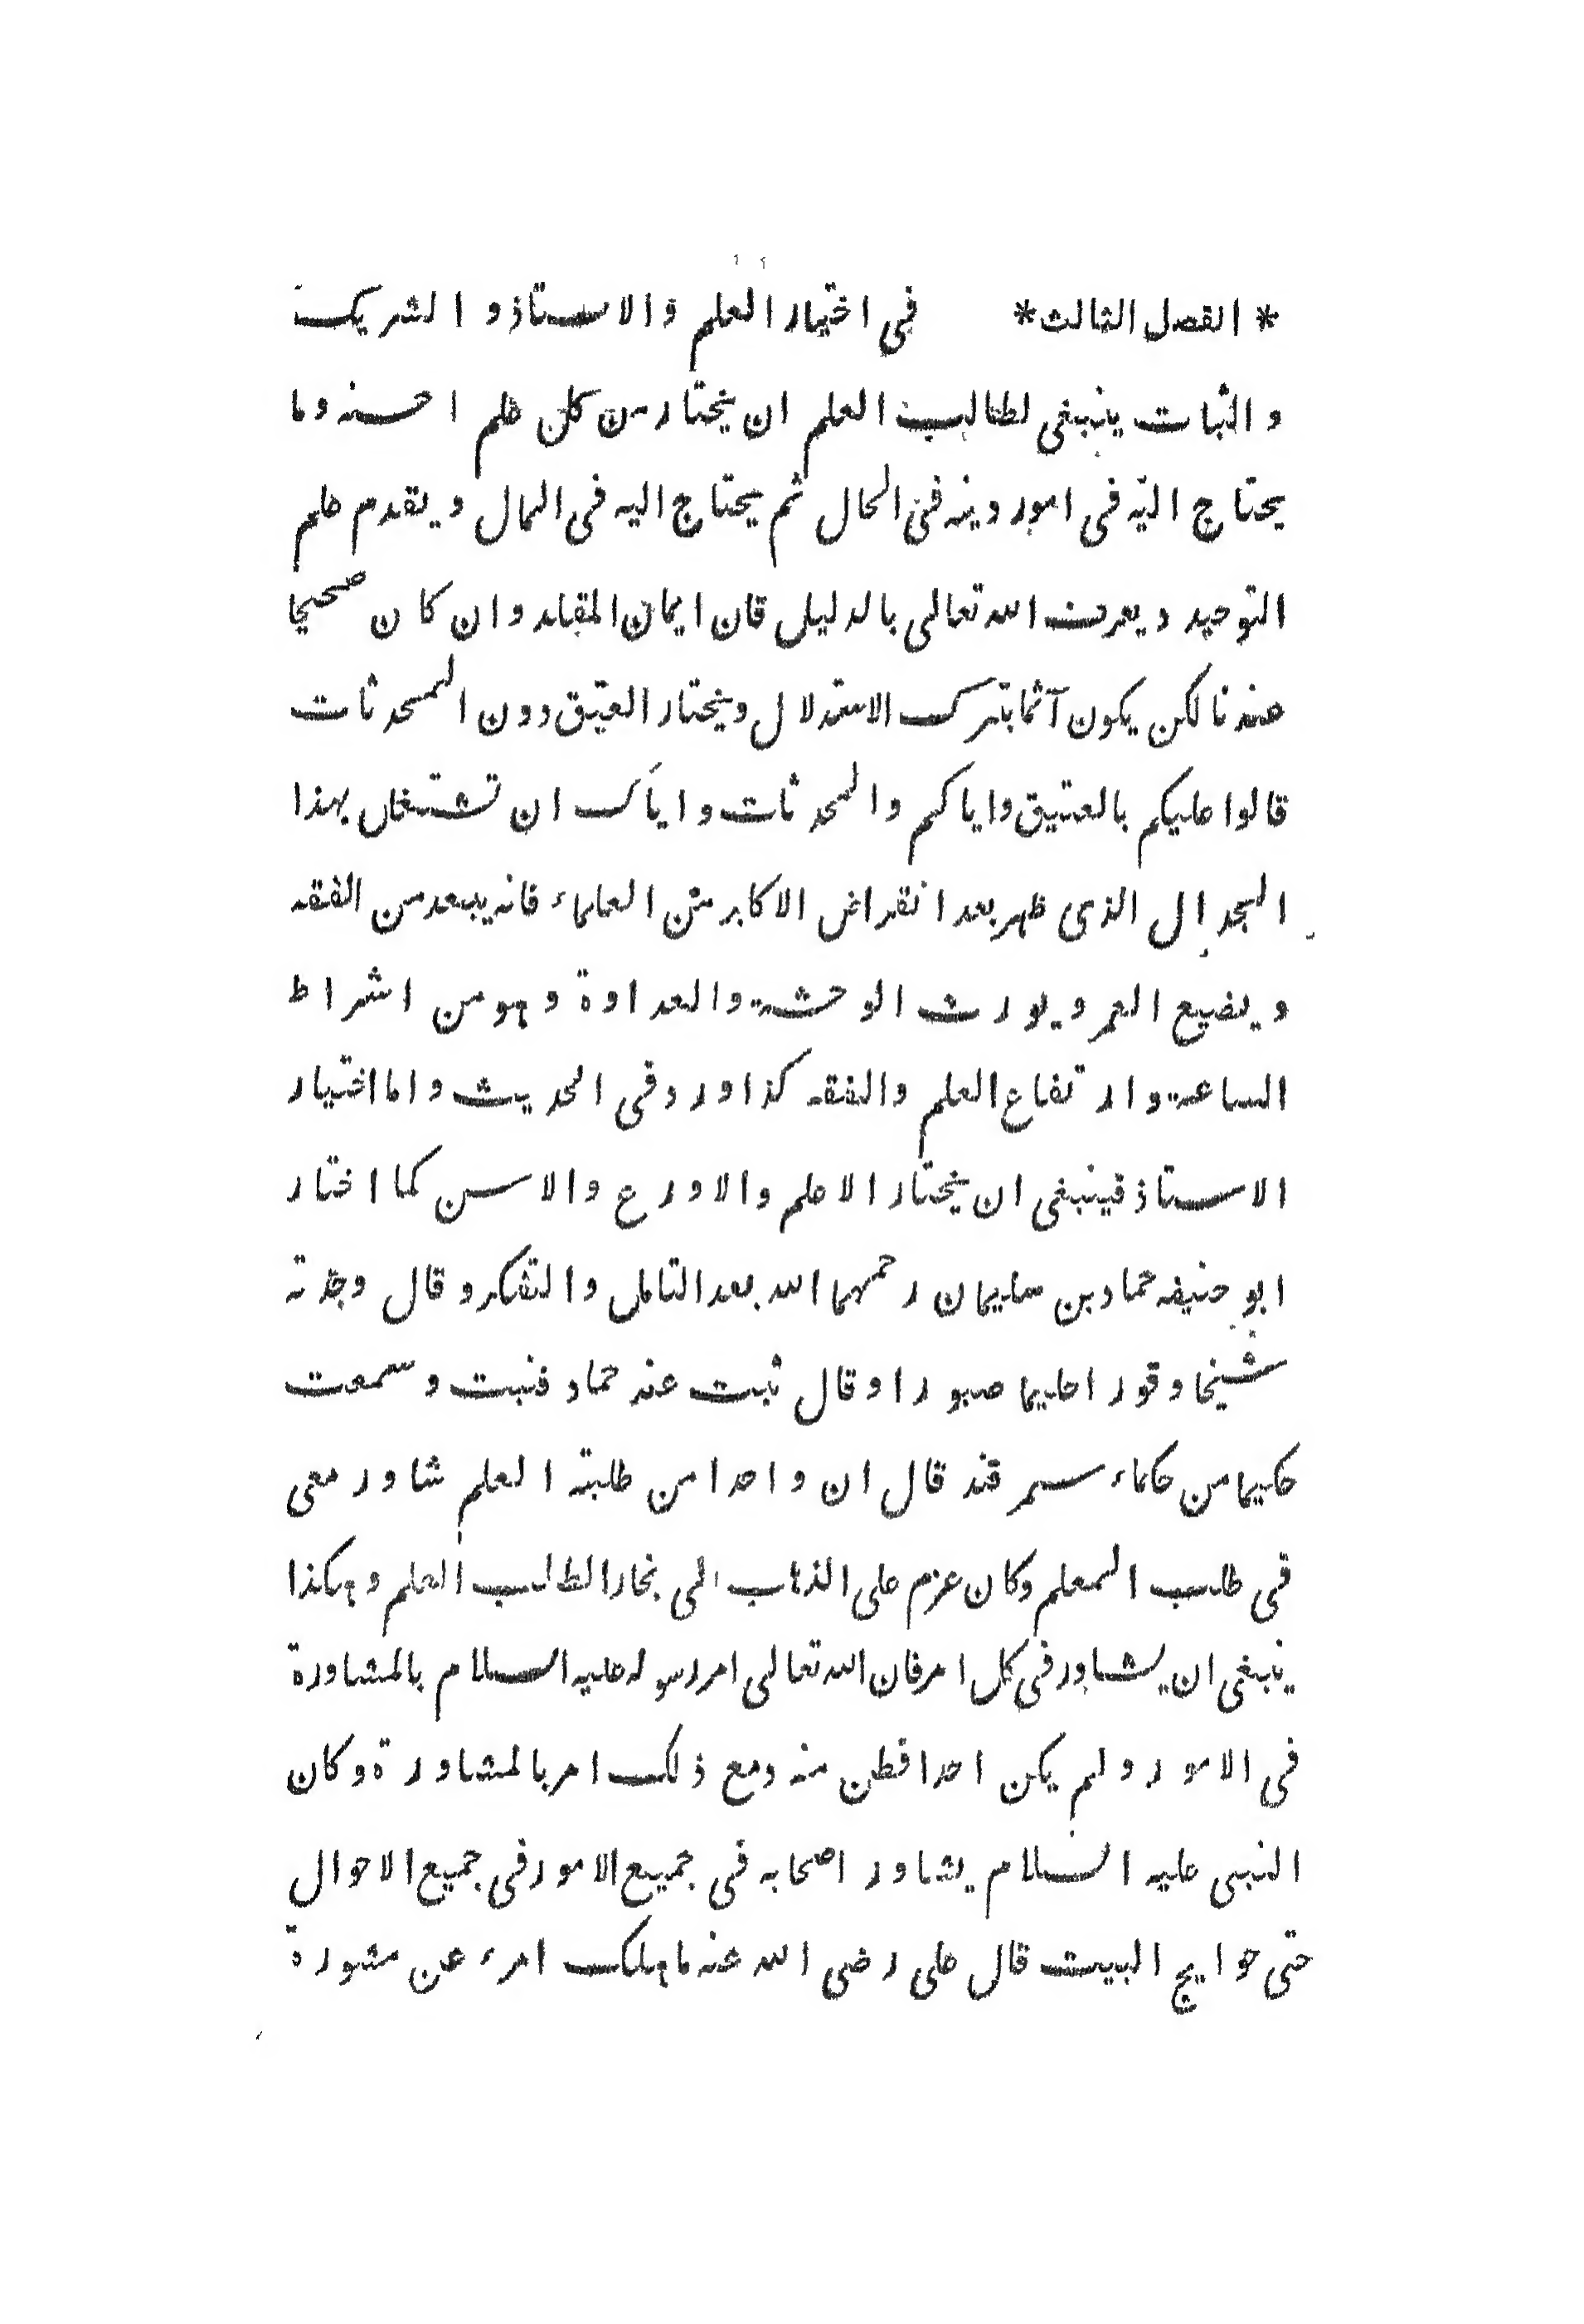 * الفصل الثالث * فى اختيار العلم والاستاذ والشريك
والثبات ينبغى لطالب العلم ان يختار من كل علم احسنه وما
يحتاج اليه فى امور دينه فى الحال ثم يحتاج اليه فى المال ويقدم علم
التوحيد ويعرف الله تعالى بالدليل فان ايمان المقلد وان كان صحيحا
عندنا لكن يكون آثما بترك الاستدلال ويختار العتيق دون المحدثات
قالوا عليكم بالعتيق واياكم والمحدثات واياك ان تشتغل بهذا
الجدال الذى ظهر بعد انقراض الاكابر من العلماء فانه يبعد من الفقه
ويضيع العمر ويورث الوحشة والعداوة وهو من اشراط
الساعة وارتفاع العلم والفقه كذا ورد فى الحديث واما اختيار
الاستاذ فينبغى ان يختار الاعلم والاورع والاسن كما اختار
ابو حنيفه حماد بن سليمان رحمهما الله بعد التامل والتفكر و قال وجدته
شيخا وقورا حليما صبورا وقال ثبت عند حماد فنبت وسمعت
حكيما من حكماء سمرقند قال ان واحدا من طلبة العلم شاور معى
فى طلب المعلم وكان عزم على الذهاب الى بخارا لطلب العلم وهكذا
ينبغى ان يشاور فى كل امر فان الله تعالى امر رسوله عليه السلام بالمشاورة
فى الامور ولم يكن احدا فطن منه ومع ذلك امر بالمشاورة وكان
النبى عليه السلام يشاور اصحابه فى جميع الامور فى جميع الاحوال
حتى حوايج البيت قال على رضى الله عنه ماهلك امرء عن مشورة